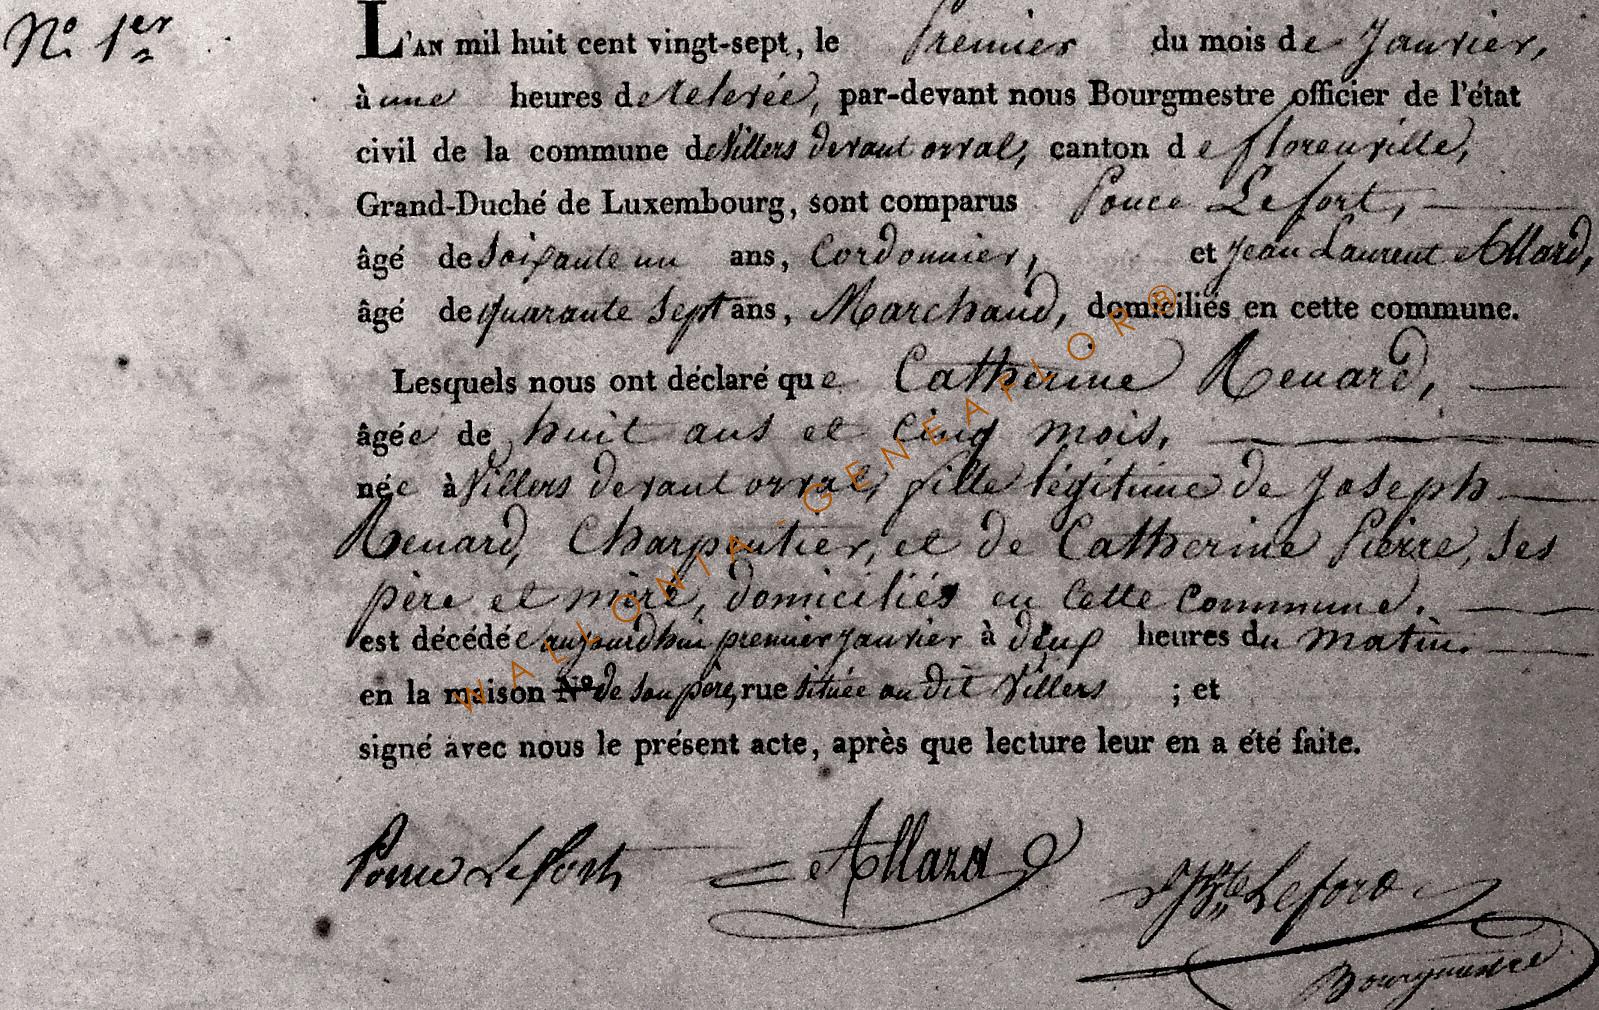 N° 1er
L'AN mil huit cent vingt-sept, le Premier du mois de Janvier,
à une heures de relevée, par-devant nous Bourgmestre officier de l'état
civil de la commune de Villers devant orval, canton de florenville,
Grand-Duché de Luxembourg, sont comparus Ponce Lefort,
âgé de Soixante un ans, Cordonnier, et Jean Laurent Allard,
âgé de quarante Sept ans, Marchand, domiciliés en cette commune.
Lesquels nous ont déclaré que Catherine Renard,
âgée de huit ans et cinq mois,
née à Villers devant orval, fille légitime de Joseph
Renard, Charpentier, et de Catherine Pierre, ses
père et mère, domiciliés en cette commune.
est décédée aujourdhui premier janvier à deux heures du matin.
en la maison N° de son père, rue située au dit Villers ; et
signé avec nous le présent acte, après que lecture leur en a été faite.
Ponce Lefort Allard Lefort
Bourgmestre
WALLONIA-GENEAFLOR®